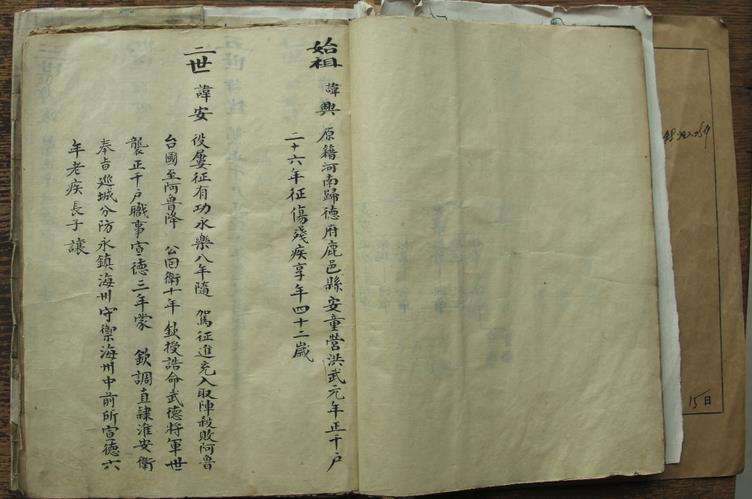 始祖 諱興 原籍河南歸德府鹿邑縣安童營洪武元年正千戶
二十六年征傷殘疾享年四十二歲
二世 諱安 役屢征有功永樂八年隨 駕征進充入敢陣殺敗阿魯
台國至阿魯降 公回衛十年 欽授誥命武德將軍世
襲正千戶職事宣德三年蒙 欽調直隸淮安衛
奉旨巡城分防永鎮海州守禦海州中前所宣德六
年老疾長子讓
15日